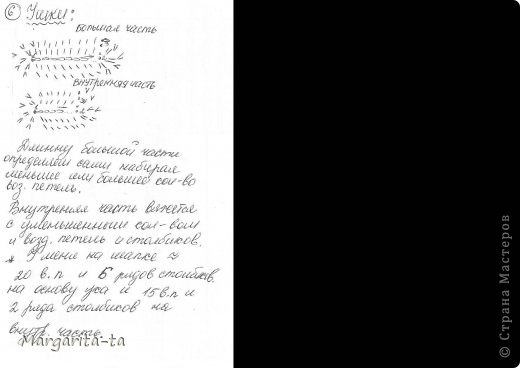 6 Ушки:
Большая часть
Внутренняя часть
Длинну большой части
определяем сами набирая
меньшее или большее кол-во
воз. петель.
Внутреняя часть вяжется
с уменьшенным кол-вом
и возд. петель и столбиков.
* У меня на шапке ≈
20 в.п и 5 рядов столбиков
на основу уха и 15 в.п и
2 ряда столбиков на
внутр. часть
Margarita-ta
© Страна Мастеров